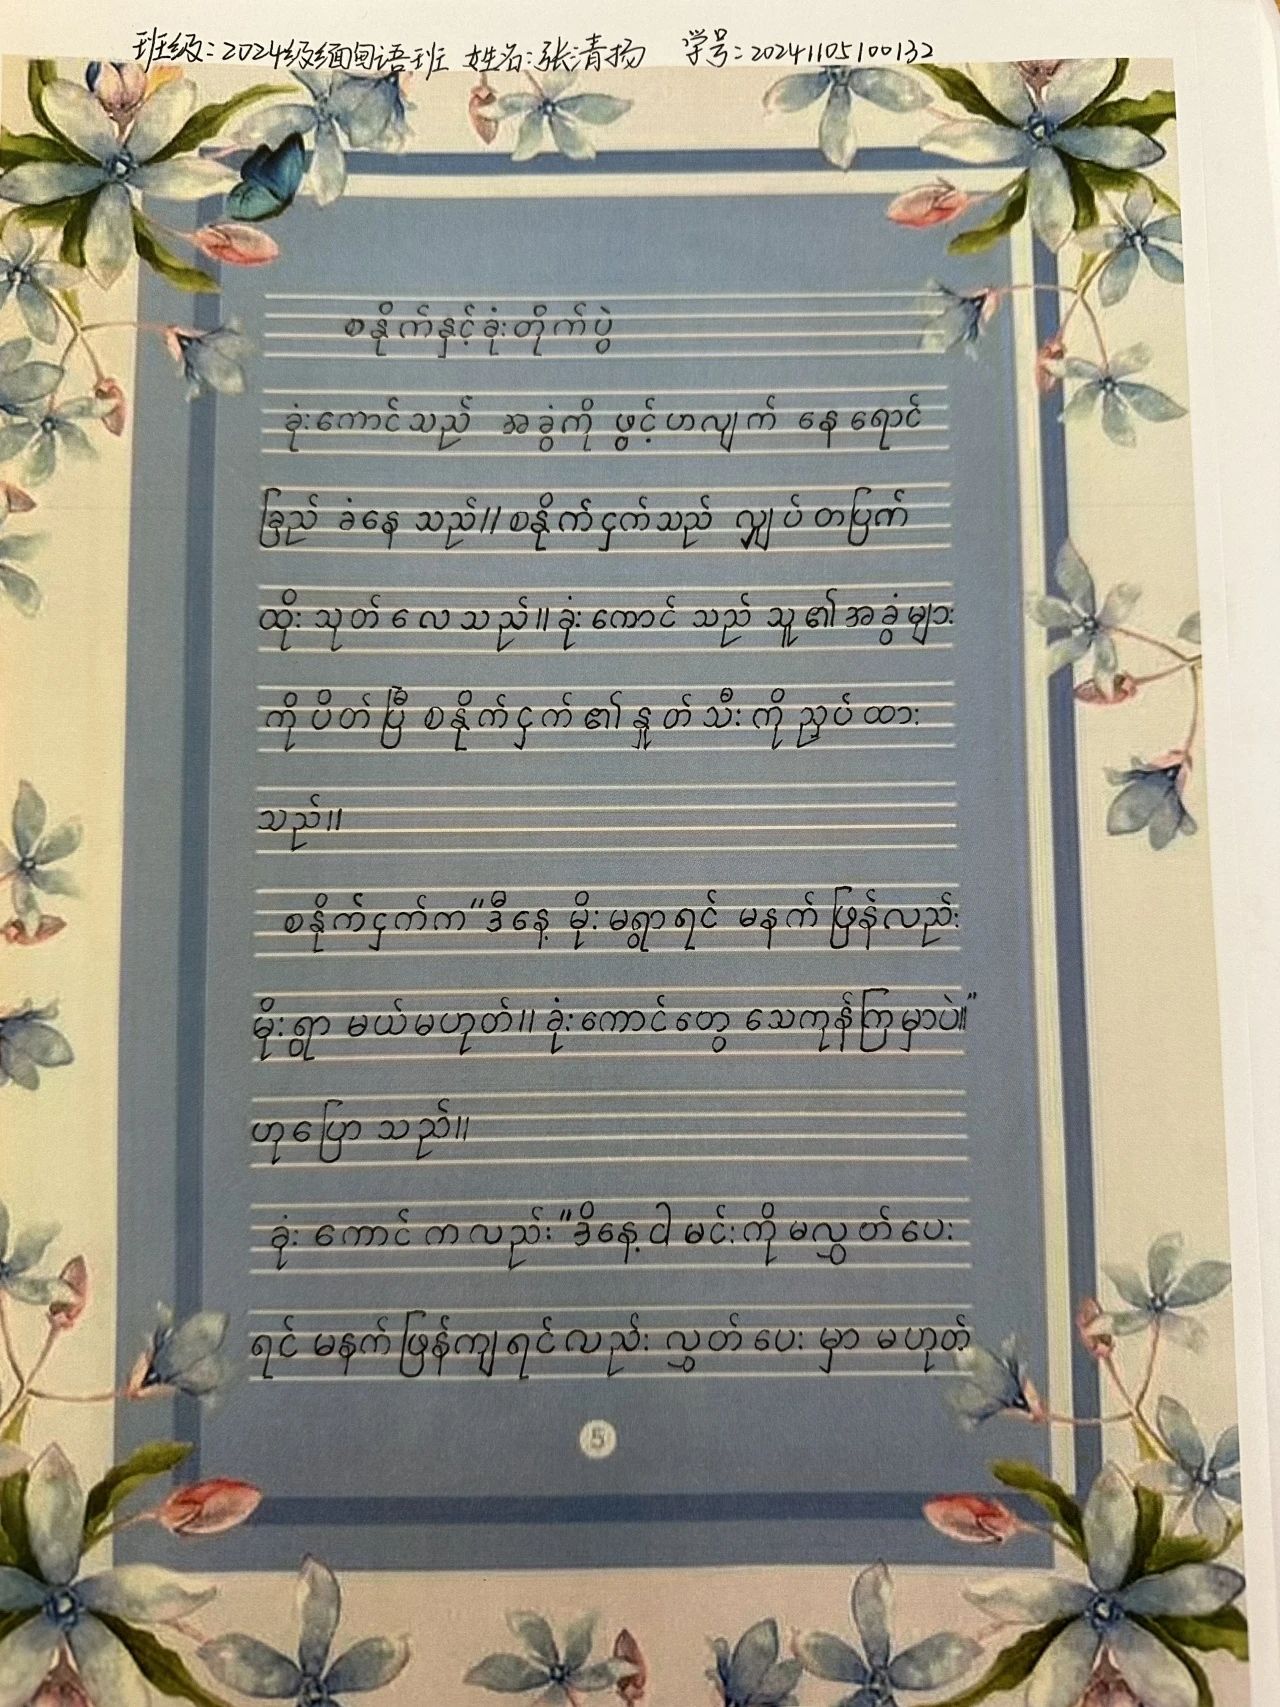 班级：2024级缅甸语班 姓名：张清扬 学号：20241105100132
စနိုက်နှင့်ခုံးတိုက်ပွဲ
ခုံးကောင်သည် အခွံကို ဖွင့်ဟလျက် နေရောင်
ခြည် ခံနေ သည်။ စနိုက်ငှက်သည် လျှပ်တပြက်
ထိုးသုတ်လေသည်။ ခုံးကောင် သည် သူ၏အခွံများ
ကိုပိတ်ပြီ စနိုက်ငှက်၏ နှုတ်သီးကိုညှပ်ထား
သည်။
စနိုက်ငှက်က "ဒီနေ့ မိုးမရွာရင် မနက်ဖြန်လည်း
မိုးရွာ မယ်မဟုတ်။ ခုံးကောင်တွေ သေကုန်ကြမှာပဲ။"
ဟုပြော သည်။
ခုံး ကောင်ကလည်း "ဒီနေ့ ငါ မင်းကို မလွှတ်ပေး
ရင် မနက်ဖြန်ကျရင်လည်း လွှတ်ပေး မှာ မဟုတ်
5